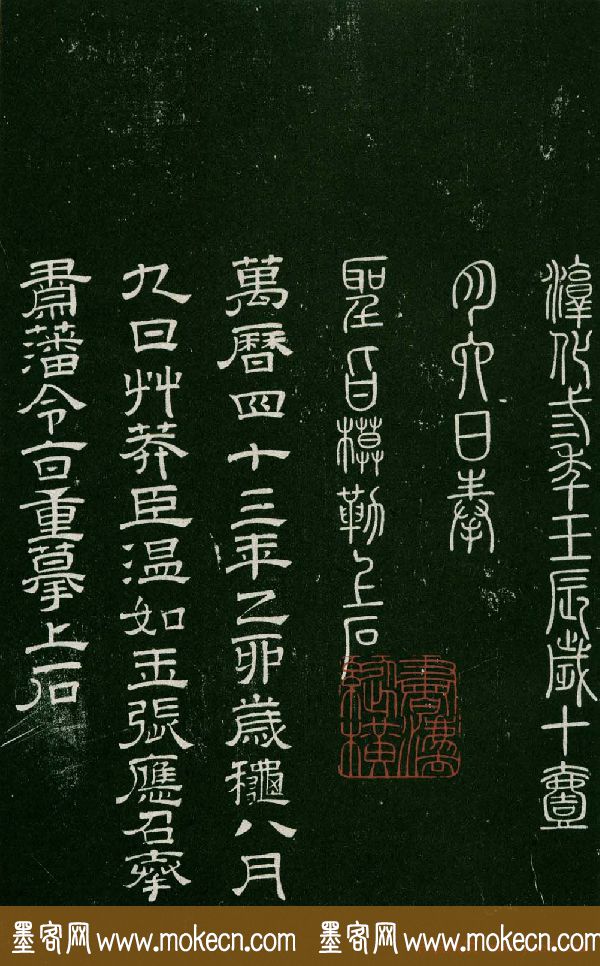 淳化三年壬辰歲十壹
月六日奉
聖旨模勒上石
萬曆四十三年乙卯歲龝八月
九日艸莽臣温如玉張應召奉
肅藩令旨重摹上石
墨客网 www.mokecn.com 墨客网 www.mokecn.com